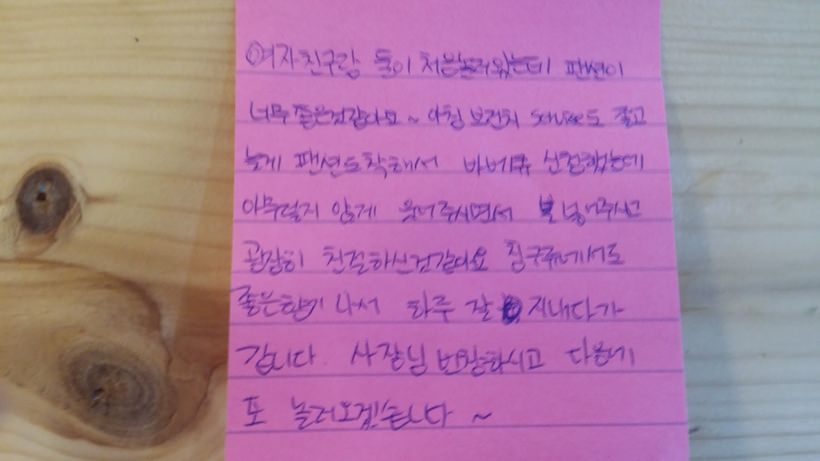 여자친구랑 둘이 처음놀러왔는데 팬션이
너무 좋은것같아요~ 아침 보건치 service도 좋고
늦게 팬션도착해서 바베큐 신청했는데
아무렇지 않게 웃어주시면서 불 넣어주시고
굉장히 친절하신것같아요 침구류에서도
좋은향기 나서 하루 잘 지내다가
갑니다. 사장님 번창하시고 다음에
또 놀러오겠습니다 ~